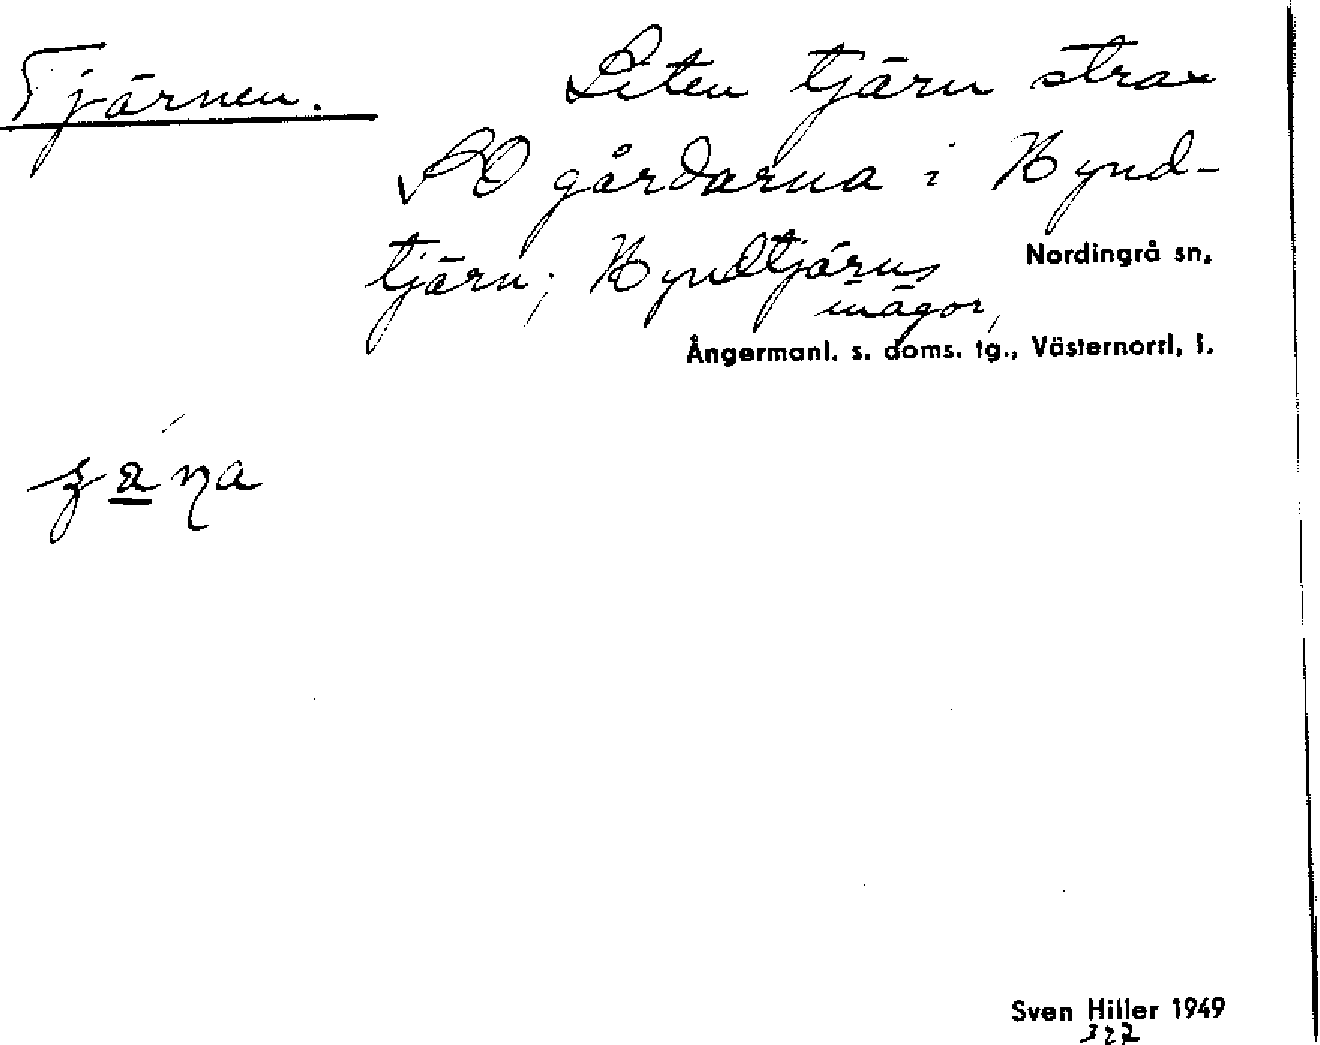 Tjärnen.
Liten tjärn strax
SO gårdarna i Hynd-
tjärn; Hyndtjärns
inägor,
Nordingrå sn.
Ångermanl. s. doms. tg., Västernorrl. l.
Sven Hiller 1949
327